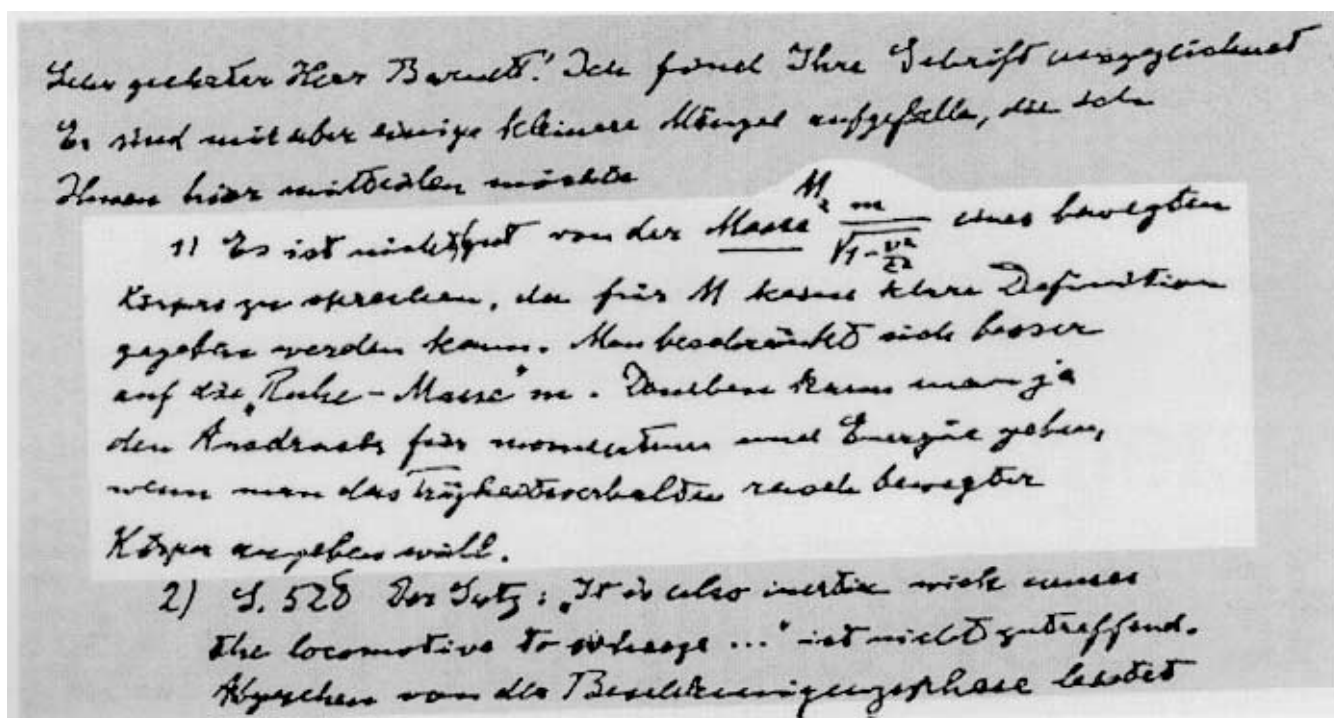 Sehr geehrter Herr Barnett! Ich find Ihre Schrift ausgezeichnet
Es sind mir aber einige kleinere Mängel aufgefalle, die ich
Ihnen hier mitteilen möchte
1) Es ist nicht gut von der Masse M = m/√(1-v²/c²) eines bewegten
Körpers zu sprechen, da für M keine klare Definition
gegeben werden kann. Man beschränkt sich besser
auf die „Ruhe-Masse" m. Daneben kann man ja
den Ausdruck für momentum und Energie geben,
wenn man das Trägheitsverhalten rasch bewegter
Körper angeben will.
2) S. 528 Der Satz: „It is also inertia which causes
the locomotive to ..." ist nicht zutreffend.
Abgesehen von der Beschleunigungsphase leistet